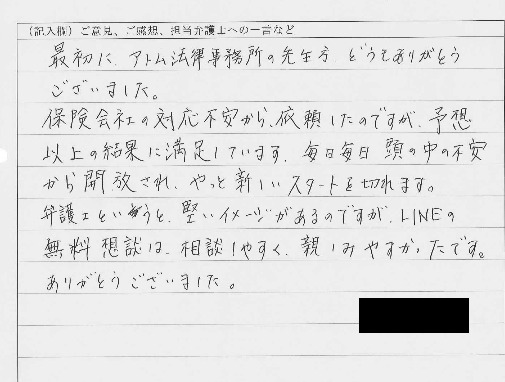 (記入欄)ご意見、ご感想、担当弁護士への一言など
最初に、アトム法律事務所の先生方 どうもありがとう
ございました。
保険会社の対応不安から、依頼したのですが、予想
以上の結果に満足しています。毎日毎日 頭の中の不安
から開放され、やっと新しいスタートを切れます。
弁護士というと、堅いイメージがあるのですが、LINEの
無料想談は、相談しやすく、親しみやすかったです。
ありがとうございました。